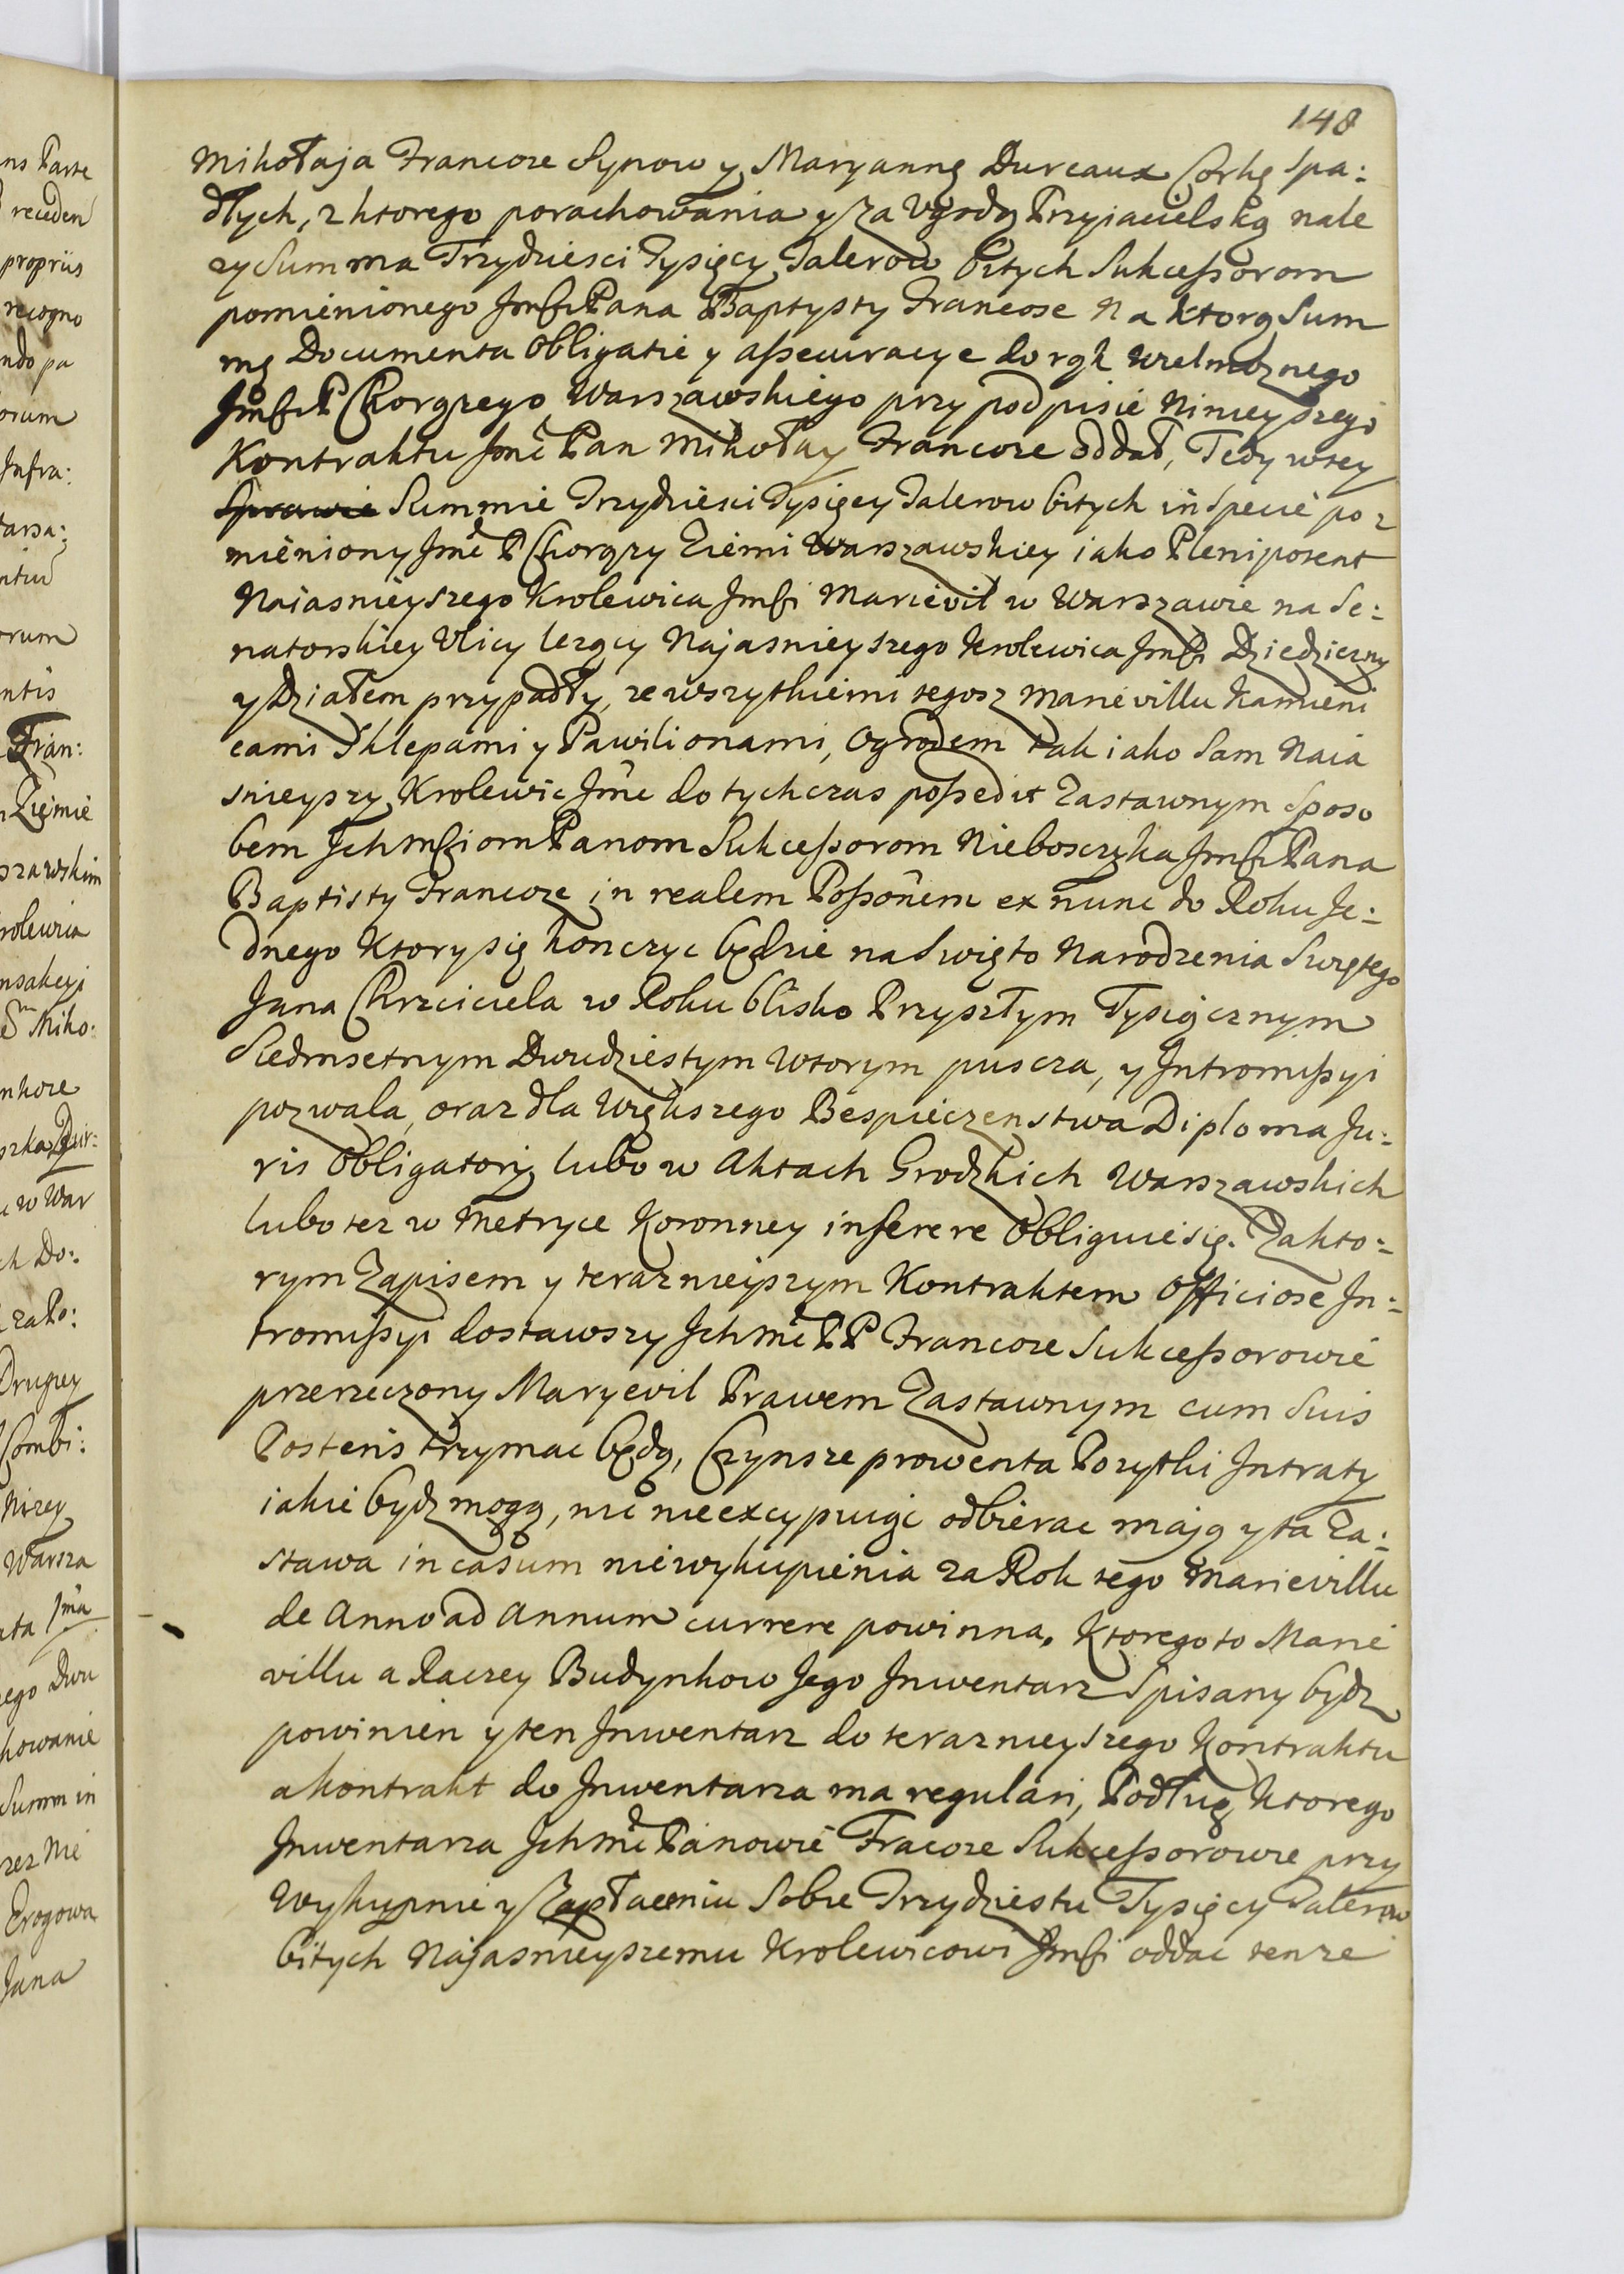 148
Mikołaja Francoze Synow y Maryannę Dureaux Corkę Spa:
dłych, z ktorego porachowania y za Vgodą Przyjacielską nale
zy Summa Trzydziesci Tysięcy Talerow bitych Sukceßorom
pomienionego Jmści Pana Baptysty Francose Na ktorą Sum
mę Documenta Obligatie y aßewracye do rąk Wielmoznego
Jmści P Chorązego Warszawskiego przy podpisie Ninieyszego
Kontraktu Jmć Pan Mikołay Francoze oddał, Tedy w tey
Sprawie Summie Trzydziesci Tysięcy Talerow bitych in Specie po
mieniony Jmć P Chorązy Ziemi Warszawskiey iako Plenipotent
Naiasnieyszego Krolewica Jmści Marievil w Warszawie na Se:
natorskiey Vlicy lezący Najasnieyszego Krolewica Jmści Dziedziczny
y Działem przypadły, ze wszytkiemi tegosz Marievillu Kamieni
cami Sklepami y Pawilionami, Ogrodem tak iako Sam Naia
snieyszy Krolewic Jmć do tychczas poßedit Zastawnym Sposo
bem Ichmściom Panom Sukceßorom Nieboszczyka Jmści Pana
Baptisty Francoze in realem Poßonem ex nunc do Roku Je:
dnego Ktory się konczyc będzie na Swięto Narodzenia Swiętego
Jana Chrzciciela w Roku blisko Przyszłym Tysiącznym
Siedmsetnym Dwudziestym Wtorym puscza, y Intromißyi
pozwala, oraz dla Większego Bespieczenstwa Diploma Ju:
ris Obligatorij lubo w Aktach Grodzkich Warszawskich
lubo tez w Metryce Koronney inserere Obliguie się. Za kto:
rym Zapisem y teraznieyszym Kontraktem Officiose In:
tromißyi dostawszy Ichmć PP Francoze Sukceßorowie
przerzeczony Maryevil Prawem Zastawnym cum Suis
Posteris trzymac będą, Czynsze prowenta Pozytki Intraty
iakie bydz mogą, nic nie excypuiąc odbierac mają y ta Za:
stawa in casum niewykupienia za Rok tego Marievillu
de Anno ad Annum currere powinna. Ktorego to Marie
villu a Raczey Budynkow Jego Inwentarz Spisany bydz
powinien y ten Inwentarz do teraznieyszego Kontraktu
a kontrakt do Inwentarza ma regulari, Podług Ktorego
Inwentarza Ichmć Panowie Fracoze Sukceßorowie przy
Wykupnie y Zapłaceniu Sobie Trzydziestu Tysięcy Talerow
bitych Najasnieyszemu Krolewicowi Jmści oddac tenze